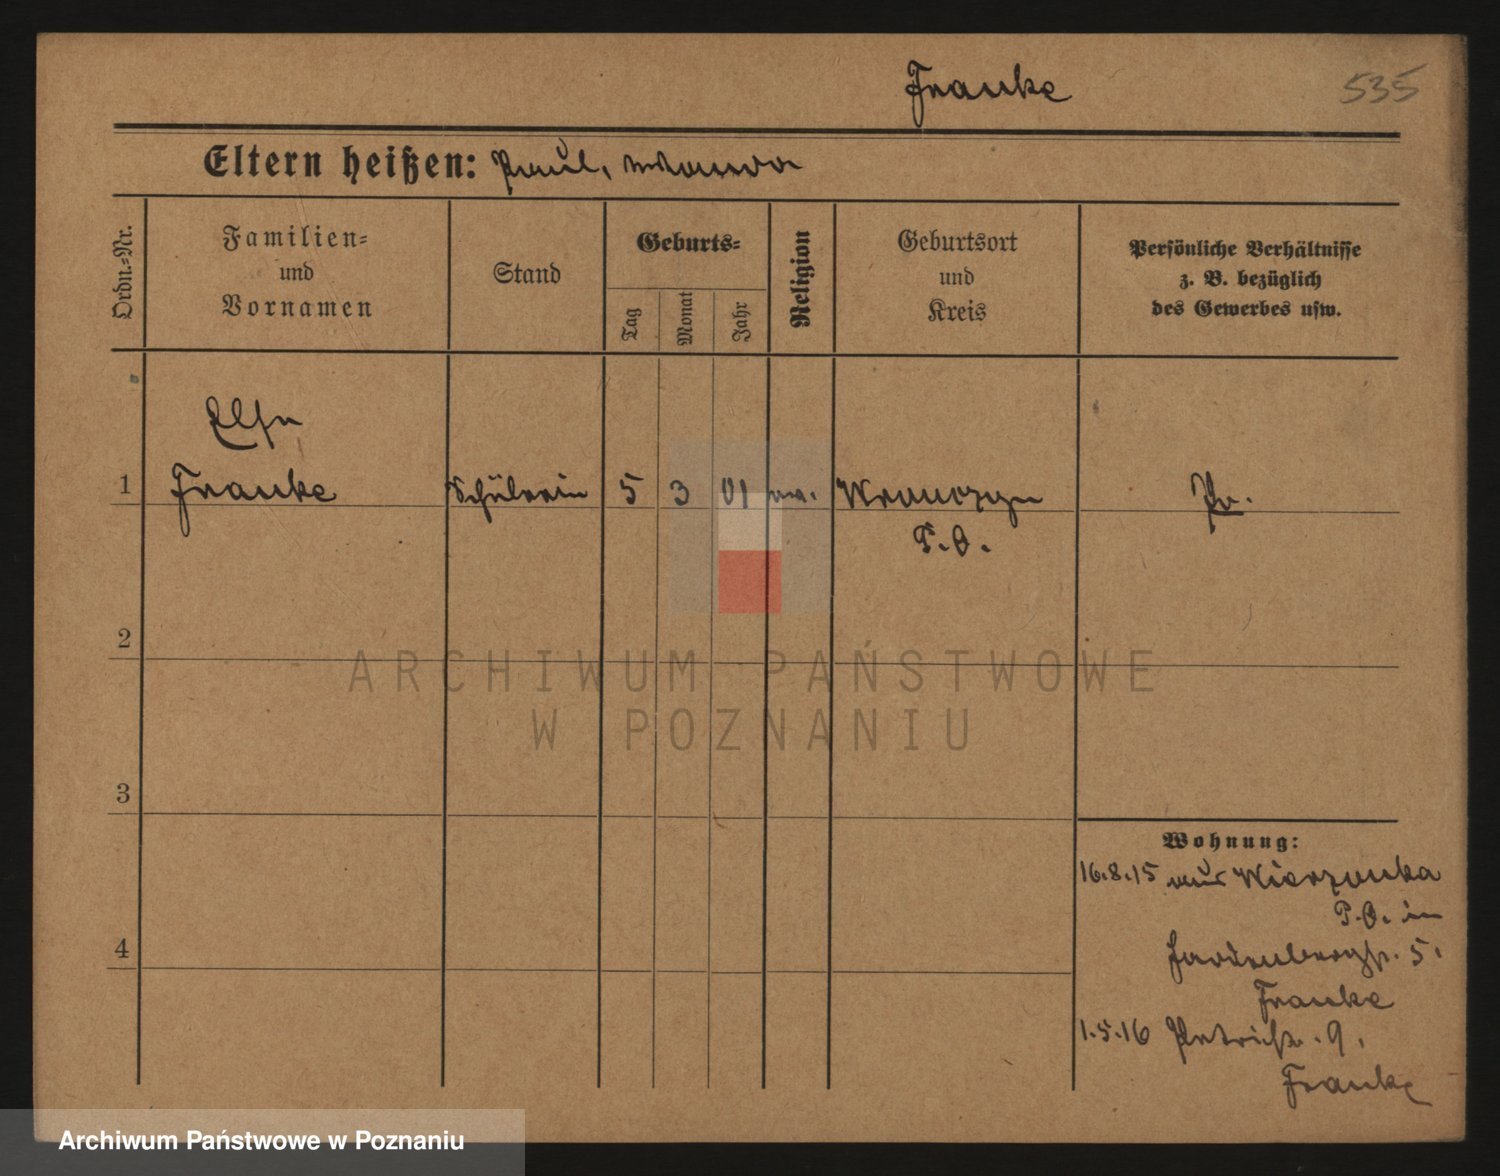 Franke
535
Eltern heißen: Paul,
Ordn.-Nr.
Familien-
und
Vornamen
Stand
Geburts-
Tag
Monat
Jahr
Religion
Geburtsort
und
Kreis
Persönliche Verhältnisse
z. B. bezüglich
des Gewerbes usw.
Else
1 Franke Schülerin 5 3 01 ev. Wronczyn Pr.
P. O.
2
3
4
Wohnung:
16.8.15 aus Wierzonka
P. O. in
Hardenbergstr. 5.
Franke
1.5.16 Petristr. 9.
Franke
ARCHIWUM PAŃSTWOWE
W POZNANIU
Archiwum Państwowe w Poznaniu